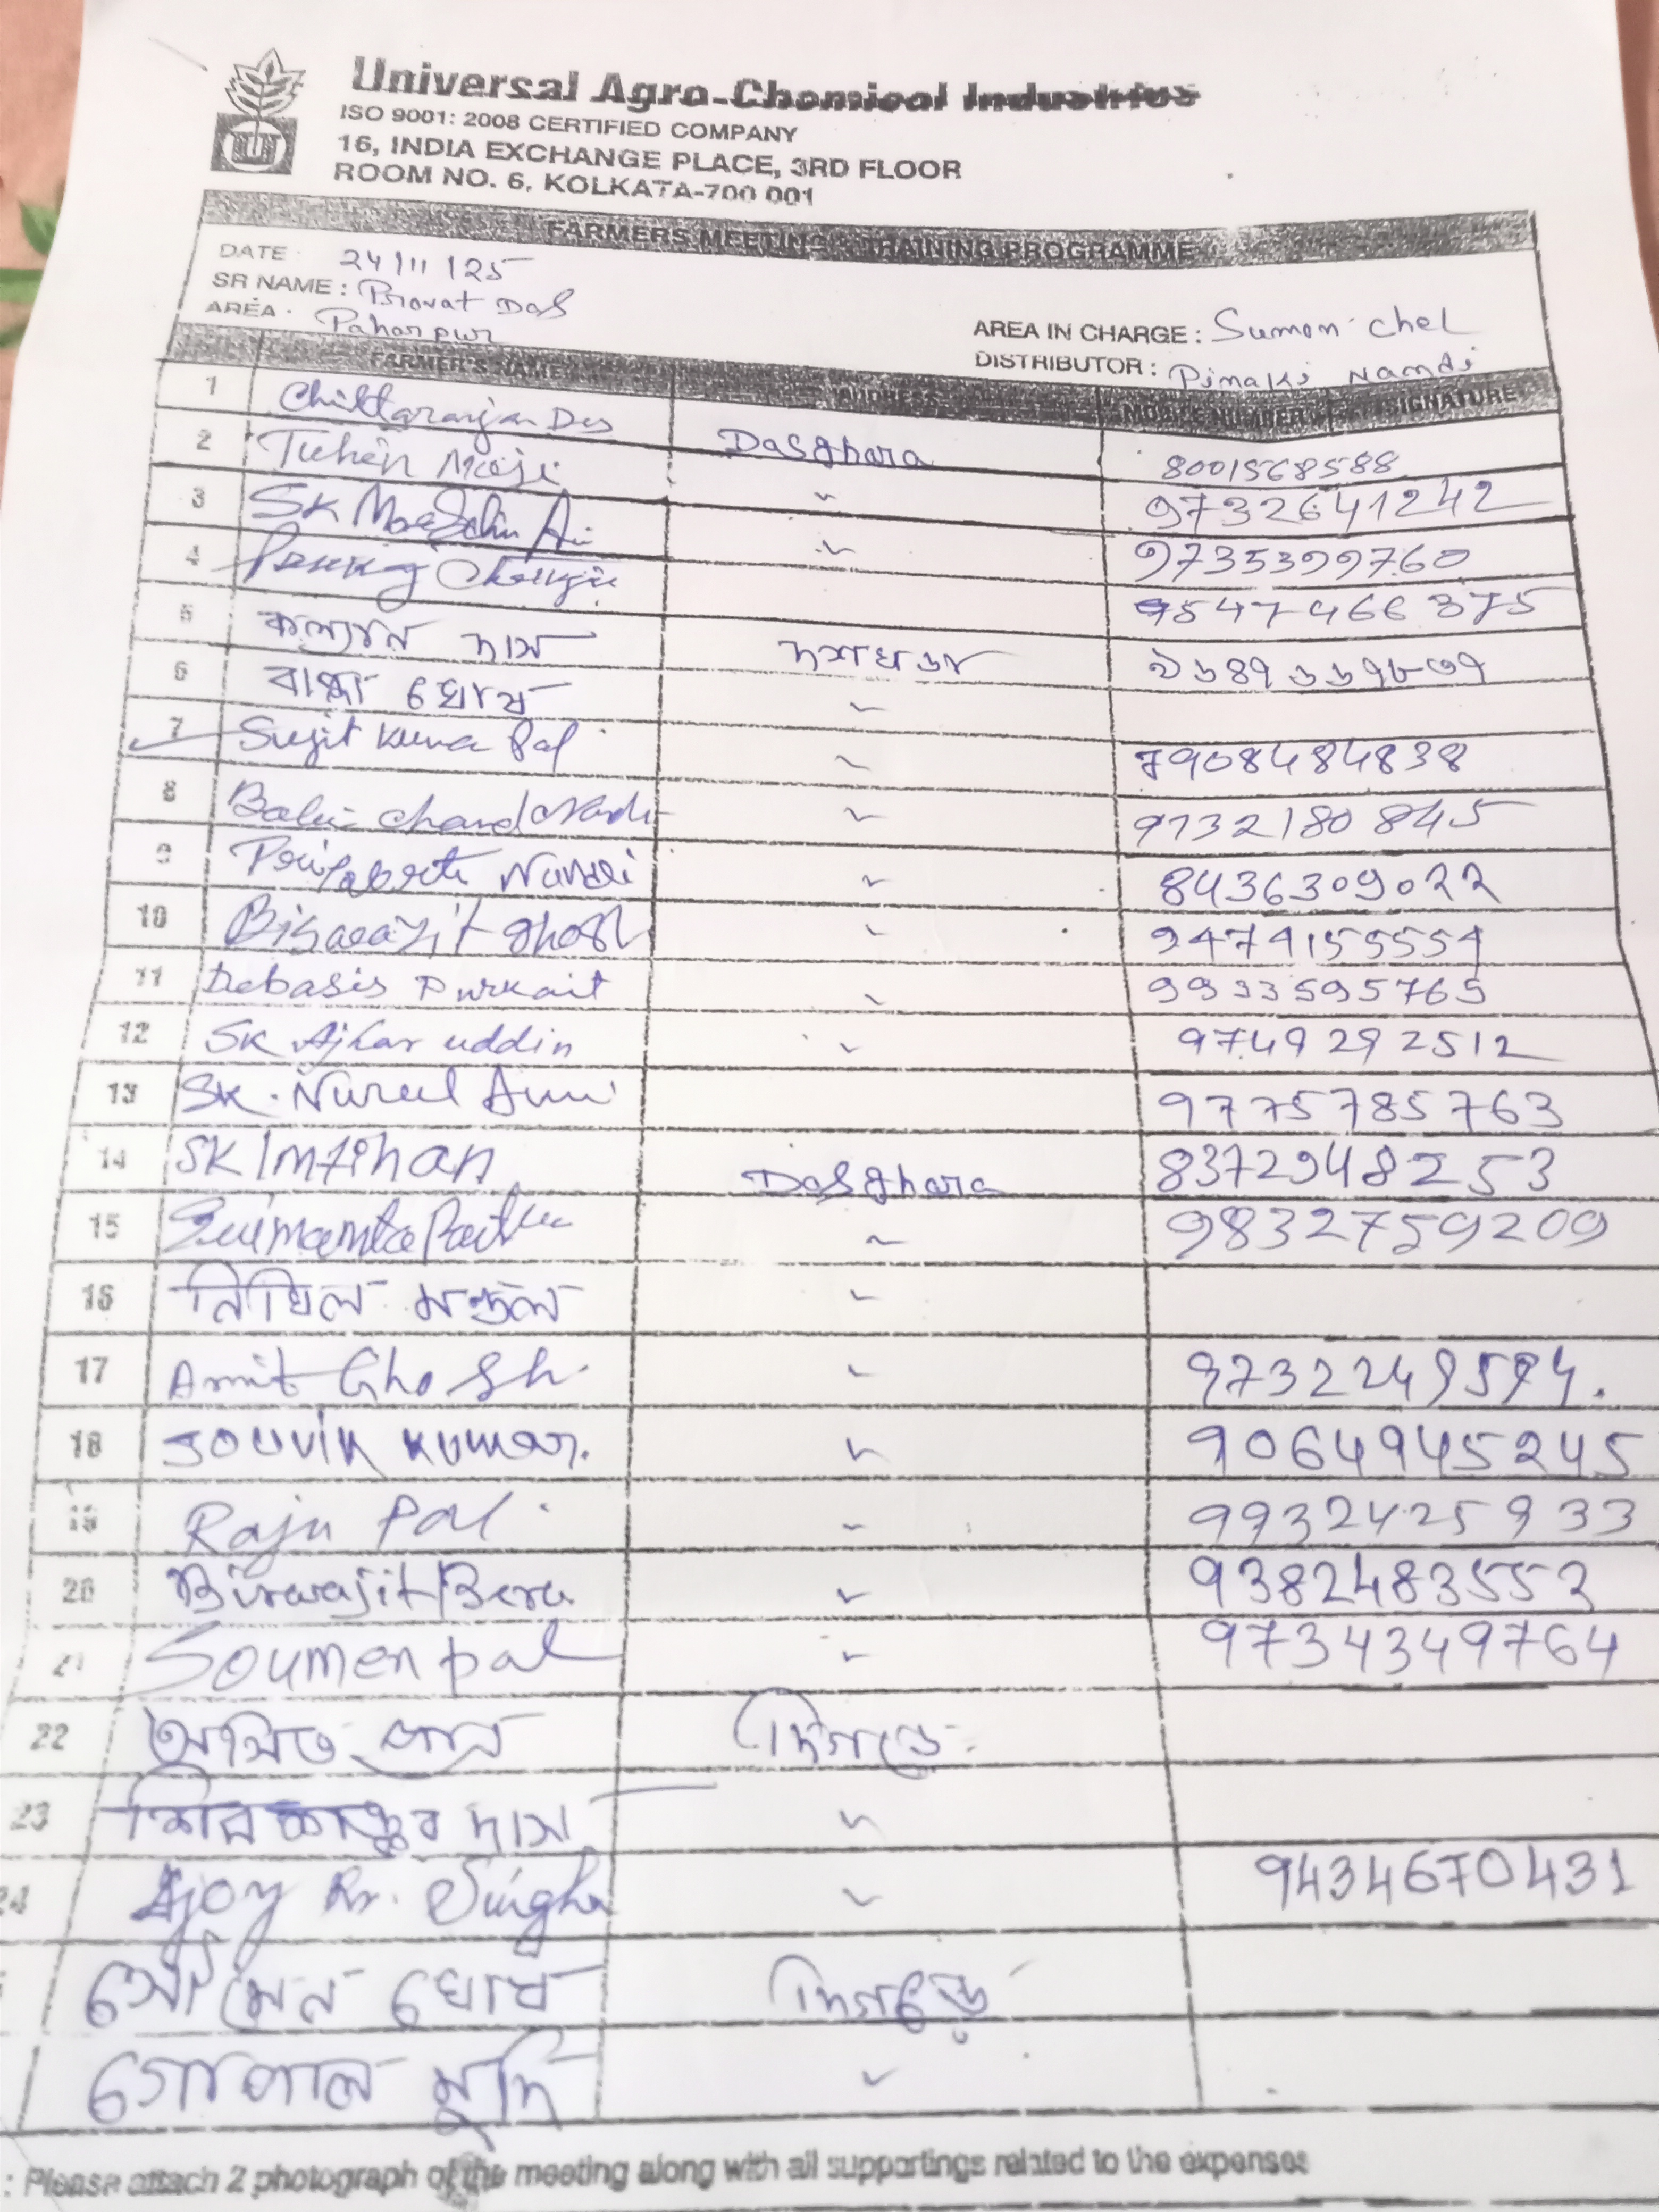 Universal Agro-Chemical Industries
ISO 9001: 2008 CERTIFIED COMPANY
16, INDIA EXCHANGE PLACE, 3RD FLOOR
ROOM NO. 6, KOLKATA-700 001
FARMERS MEETING & TRAINING PROGRAMME
DATE : 24/11/25
SR NAME : Provat Das
AREA : Paharpur
AREA IN CHARGE : Suman Chel
DISTRIBUTOR : Pinaki Nandi
FARMER'S NAME ADDRESS MOBILE NUMBER SIGNATURE
1 Chittaranjan Das Dasghara 8001568588
2 Tuhin Maji 〃 9732641242
3 SK 〃 9735399760
4 9547466375
5 কল্যান দাস দশঘরা ৯৬৪৭৬৬৭৮৩৭
6 ঘোষ 〃
7 Sujit Kumar Pal 〃 7908484838
8 Chand 〃 9732180845
9 Priyabrata Nandi 〃 8436309022
10 Biswajit Ghosh 〃 9474155554
11 Debasis Purkait 〃 9933595765
12 SK Ajhar uddin 〃 9749292512
13 SK. Nurul 9775785763
14 SK Imtihan Dasghara 8372948253
15 〃 9832759209
16 নিখিল মণ্ডল 〃
17 Amit Ghosh 〃 9732249594.
18 Souvik Kumar. 〃 9064945245
19 Raju Pal 〃 9932425933
20 Biswajit Bera 〃 9382483553
21 Soumen pal 〃 9734349764
22 অমিত পাল দিগড়ে
23 দাস 〃
24 Ajoy Kr. Singha 〃 9434670431
সৌমেন ঘোষ দিগড়ে
গোপাল মুদি 〃
: Please attach 2 photograph of the meeting along with all supportings related to the expenses